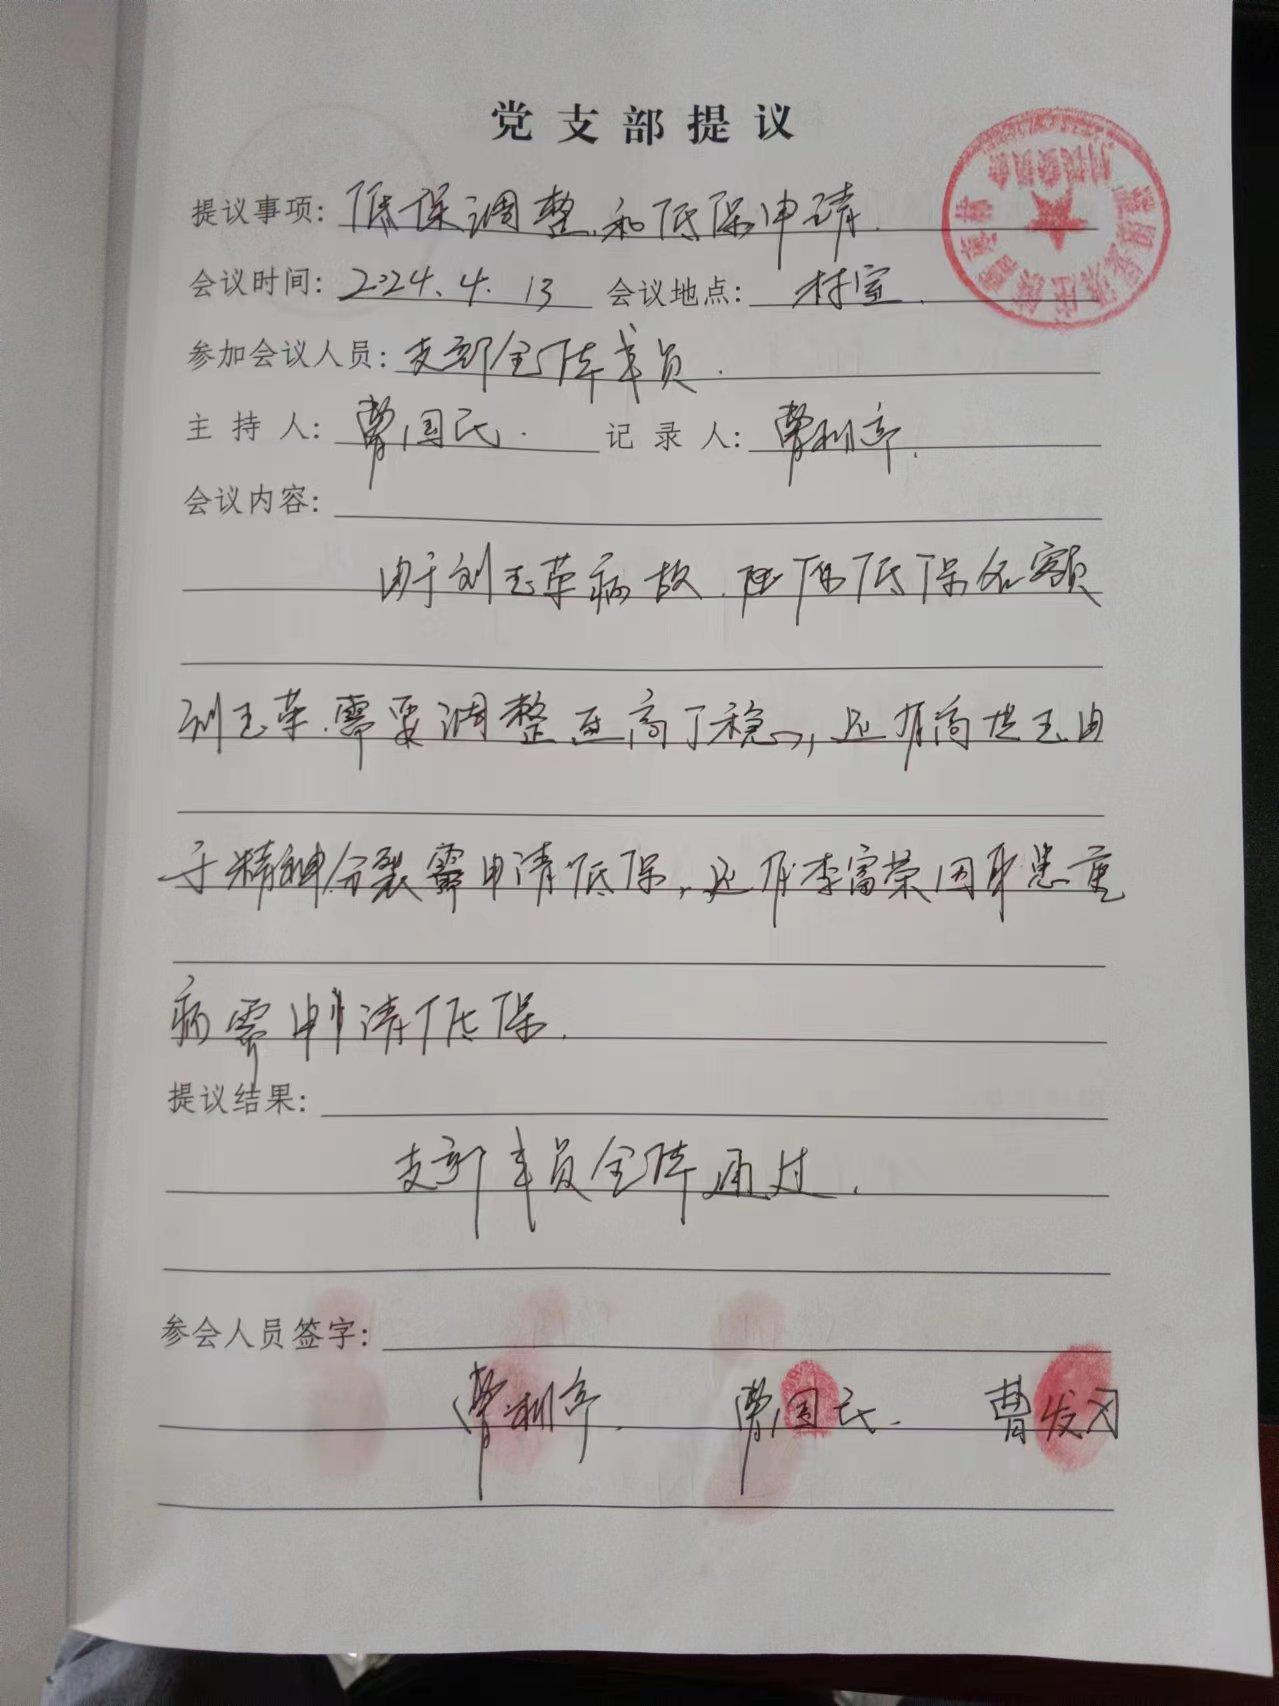 党支部提议
提议事项：低保调整、和低保申请.
会议时间：2024.4.13 会议地点：村室.
参加会议人员：支部全体党员.
主持人：曹国民. 记录人：曹利亭.
会议内容：
由于刘玉荣病故. 低保名额
刘玉荣.需要调整至高丁稳心,还有高洪玉由
于精神分裂需申请低保,还有李富荣因身患重
病需申请低保.
提议结果：
支部党员全体通过.
参会人员签字：
曹利亭. 曹国民. 曹发闪
村民委员会